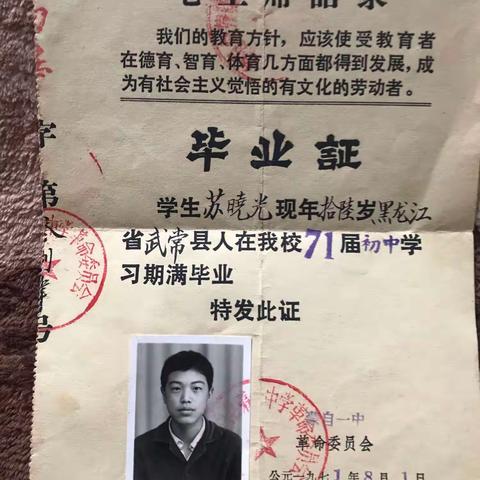 毛主席语录
我们的教育方针，应该使受教育者
在德育、智育、体育几方面都得到发展，成
为有社会主义觉悟的有文化的劳动者。
毕业証
学生苏晓光现年拾陆岁黑龙江
省武常县人在我校71届初中学
习期满毕业
特发此证
自一中
革命委员会
公元一九七1年8月1日
字第
号
中学革命委员会
革命委员会